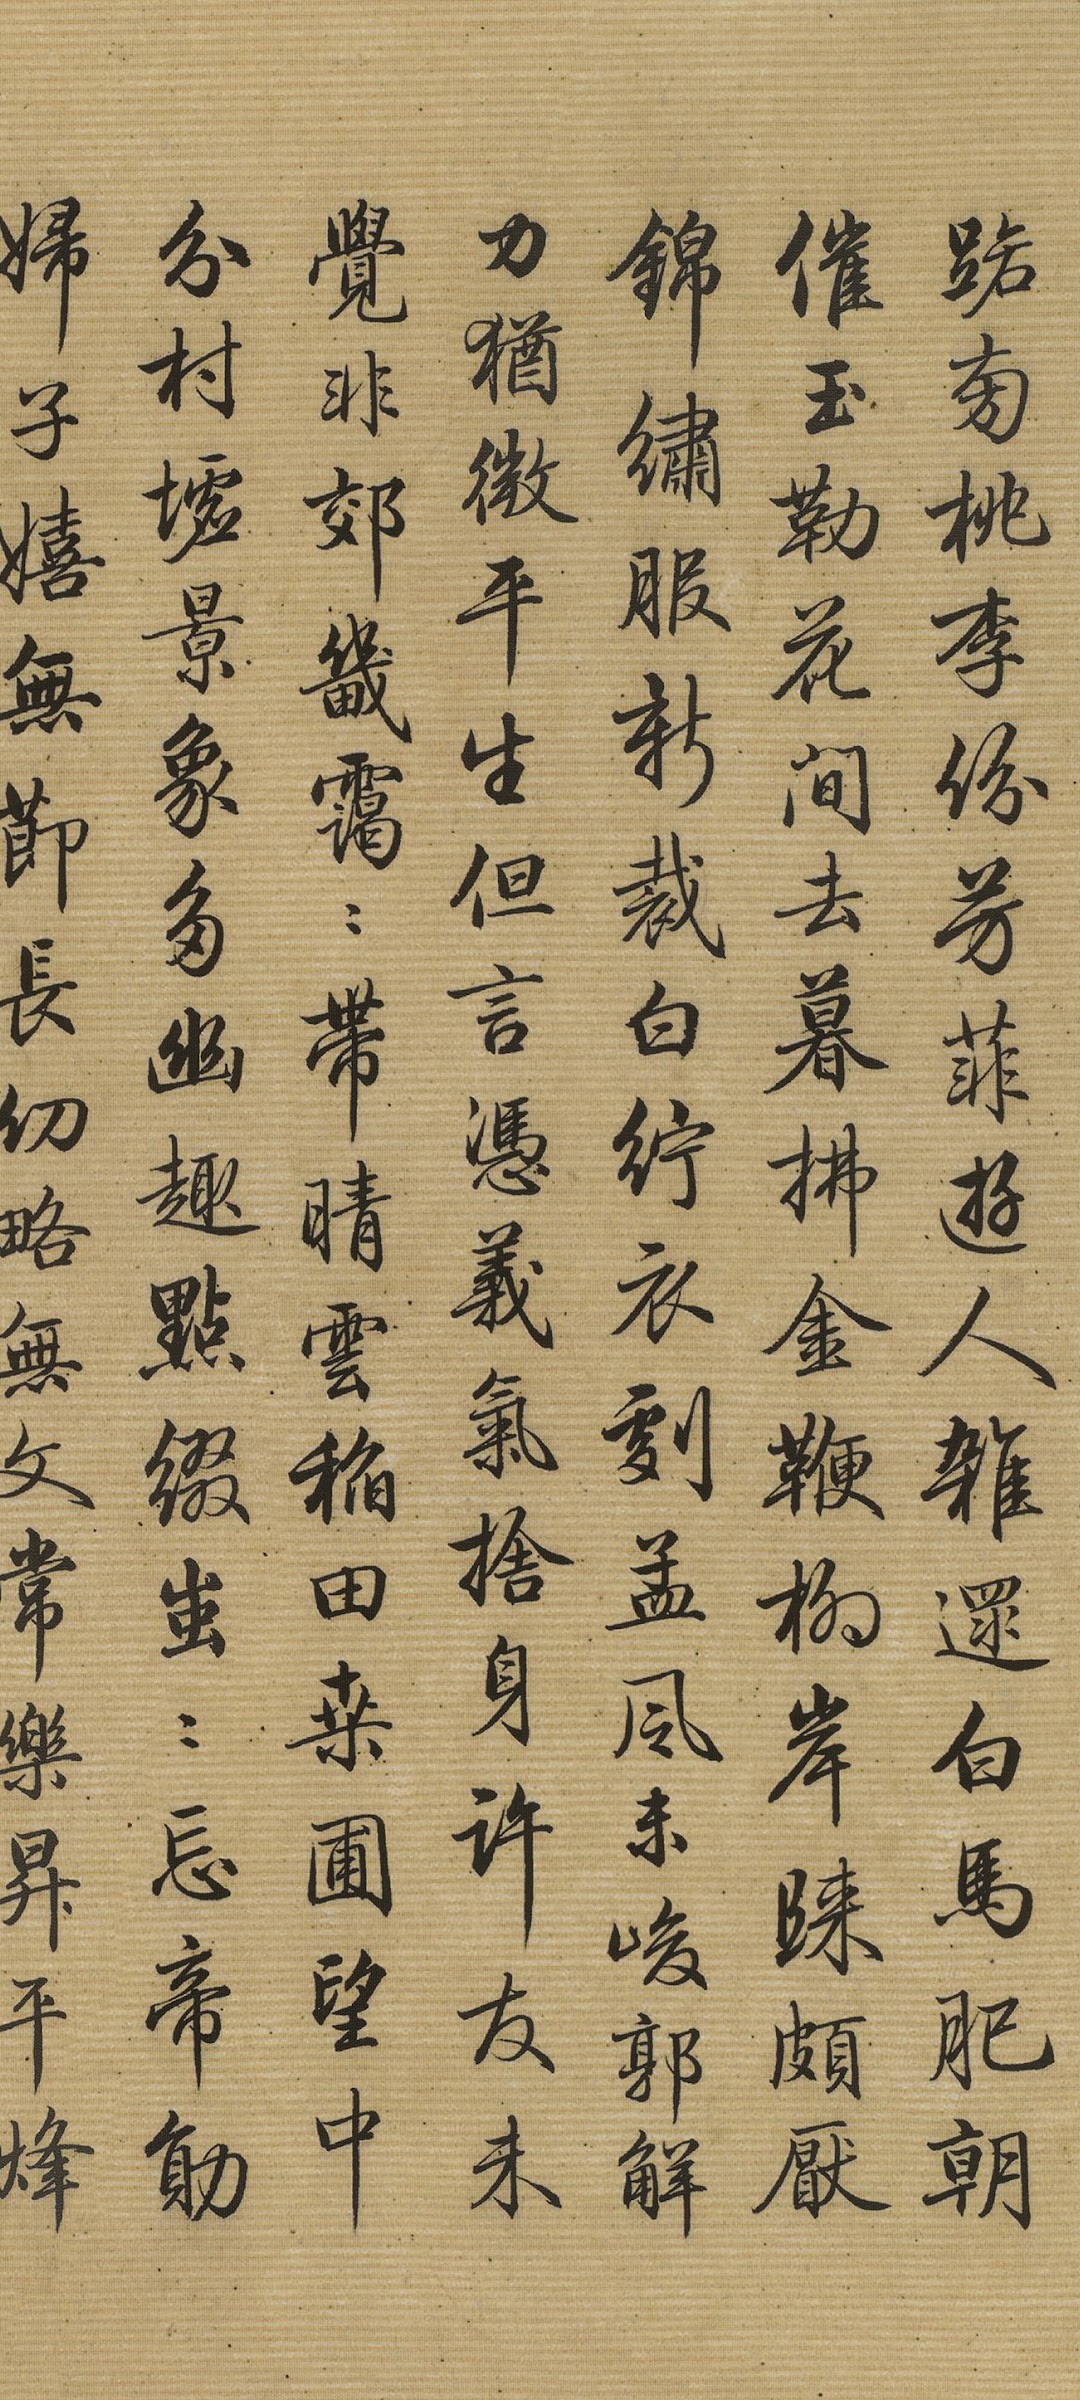 踞南桃李份芳菲遊人雜還白馬肥朝
催玉勒花間去暮拂金鞭柳岸睞頗厭
錦繡服新裁白紵衣劇孟風未峻郭解
力猶微平生但言憑義氣捨身許友未
覺非郊畿靄〻帶晴雲稻田桒圃望中
分村墟景象多幽趣點綴蚩〻忘帝勛
婦子嬉無節長幼略無文常樂昇平烽